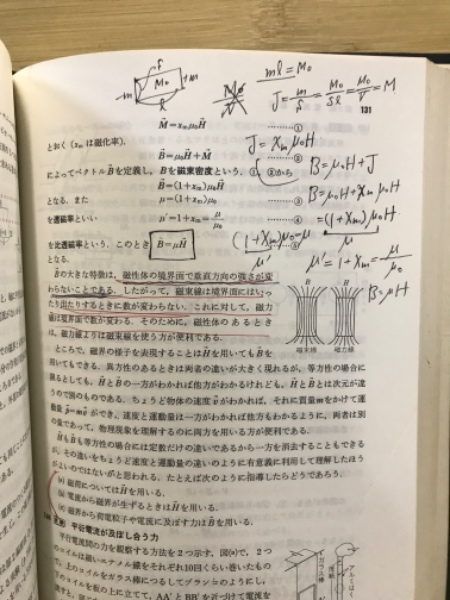 ml = M₀
J = m/S = M₀/Sl = M₀/V = M
131
M⃗ = xₘμ₀H⃗ ………①
とおく (xₘ は磁化率).
J = χₘμ₀H
B⃗ = μ₀H⃗ + M⃗ ………②
によってベクトル B⃗ を定義し, B⃗ を磁束密度という. ①, ②から
B = μ₀H + J
B⃗ = (1+xₘ)μ₀H⃗ ………③
B = μ₀H + χₘμ₀H
となる. また μ = (1+xₘ)μ₀
を透磁率といい μ' = 1+xₘ = μ/μ₀ ………④
= (1+χₘ)μ₀H
μ
を比透磁率という. このとき B⃗ = μH⃗ ………⑤
(1+χₘ)μ₀ = μ
μ'
μ' = 1+χₘ = μ/μ₀
B = μH
となる.
B⃗ の大きな特徴は, 磁性体の境界面で垂直方向の強さが変
わらないことである. したがって, 磁束線は境界面にはいっ
たり出たりするときに数が変わらない. これに対して, 磁力
線は境界面で数が変わる. そのために, 磁性体のあるとき
は, 磁力線よりは磁束線を使う方が便利である.
B H
磁束線 磁力線
ところで, 磁界の様子を表現することは H⃗ を用いても B⃗ を
用いてもできる. 異方性のあるときは両者の違いが大きく現れるが, 等方性の場合に
限るとしても, H⃗ と B⃗ の一方がわかれば他方がわかるけれども, H⃗ と B⃗ とは次元が違
うので別のものである. ちょうど物体の速度 v⃗ がわかれば, それに質量 m をかけて運
動量 p⃗ = mv⃗ ができ, 速度と運動量は一方がわかれば他方もわかるように, 両者は別
の量であって, 物理現象を理解するのに両方を用いる方が便利である.
H⃗ も B⃗ も等方性の場合には定数だけの違いであるから一方を消去することもできる
が, その違いをちょうど速度と運動量の違いのように有意義に利用して理解したほう
がよいのではないかと思われる. たとえば次のように指導したらどうであろう.
(a) 磁荷については H⃗ を用いる.
(b) 電流から磁界が生ずるときは H⃗ を用いる.
(c) 磁界から荷電粒子や電流に及ぼす力は B⃗ を用いる.
平行電流が及ぼし合う力
平行電流間の力を観察する方法を2つ示す. 図(a)で, 2つ
のコイルは細いエナメル線をそれぞれ10回くらい巻いたもの
で, 上のコイルをガラス棒につるしてブランコのようにし,
下のコイルを板の上に立てて, AA' と BB' を近づけて電流を
ガラス棒